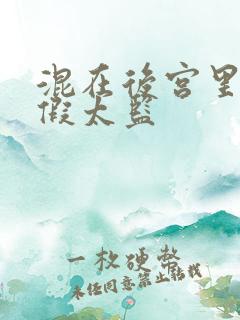 混在後宮里
假太監
一枚硬幣
未经同意禁止转载